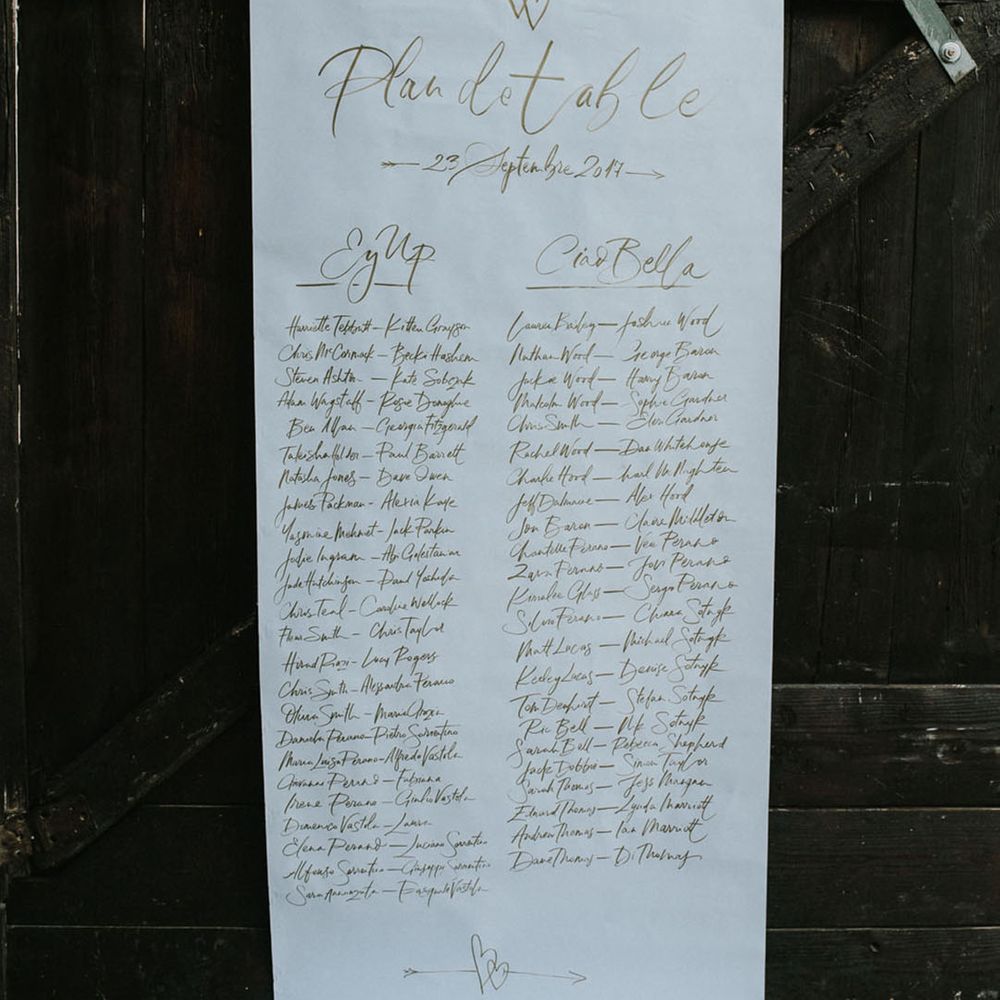 Plan de table
23 Septembre 2017
Ey Up
Harriette Tebbutt - Kitten Grayson
Chris McCormack - Becki Hashem
Steven Ashton - Kate Sobczak
Adam Wagstaff - Rosie Donoghue
Ben Allan - Georgia Fitzgerald
Takeisha Holder - Paul Barrett
Natasha Jones - Dave Owen
James Packman - Alexia Kaye
Yasmine Mehmet - Jack Parkin
Jodie Ingram - Abi Golestanian
Jude Hutchinson - Paul Yoshida
Chris Teal - Caroline Wellock
Smith - Chris Taylor
Lucy Rogers
Chris Smith - Alessandra Perano
Olivia Smith - Maria
Daniela Perano - Pietro Sorrentino
Maria Luisa Perano - Alfredo Vastola
Giovanni Perano - Fabiana
Irene Perano - Giulio Vastola
Domenico Vastola - Laura
Elena Perano - Luciano Sorrentino
Alfonso Sorrentino - Giuseppe Sorrentino
Sara Annunziata - Pasquale Vastola
Ciao Bella
Lauren Bailey - Joshua Wood
Nathan Wood - George Baron
Jackie Wood - Harry Baron
Malcolm Wood - Sophie Gardner
Chris Smith - Gardner
Rachel Wood - Dan Whitehouse
Charlie Hood - Charl McNaughten
Jeff - Alex Hood
Jon Baron - Claire Middleton
Chantelle Perano - Vea Perano
Zara Perano - Jovi Perano
Kerralee Glass - Sergio Perano
Silvio Perano - Chiara Sotnyk
Matt Lucas - Michael Sotnyk
Keeley Lucas - Denise Sotnyk
Tom Dewhirst - Stefan Sotnyk
Ric Bell - Nik Sotnyk
Sarah Bell - Rebecca Shepherd
Jade Dobbie - Simon Taylor
Sarah Thomas - Jess Mangan
Edward Thomas - Lynda Marriott
Andrew Thomas - Ian Marriott
Dave Thomas - Di Thomas